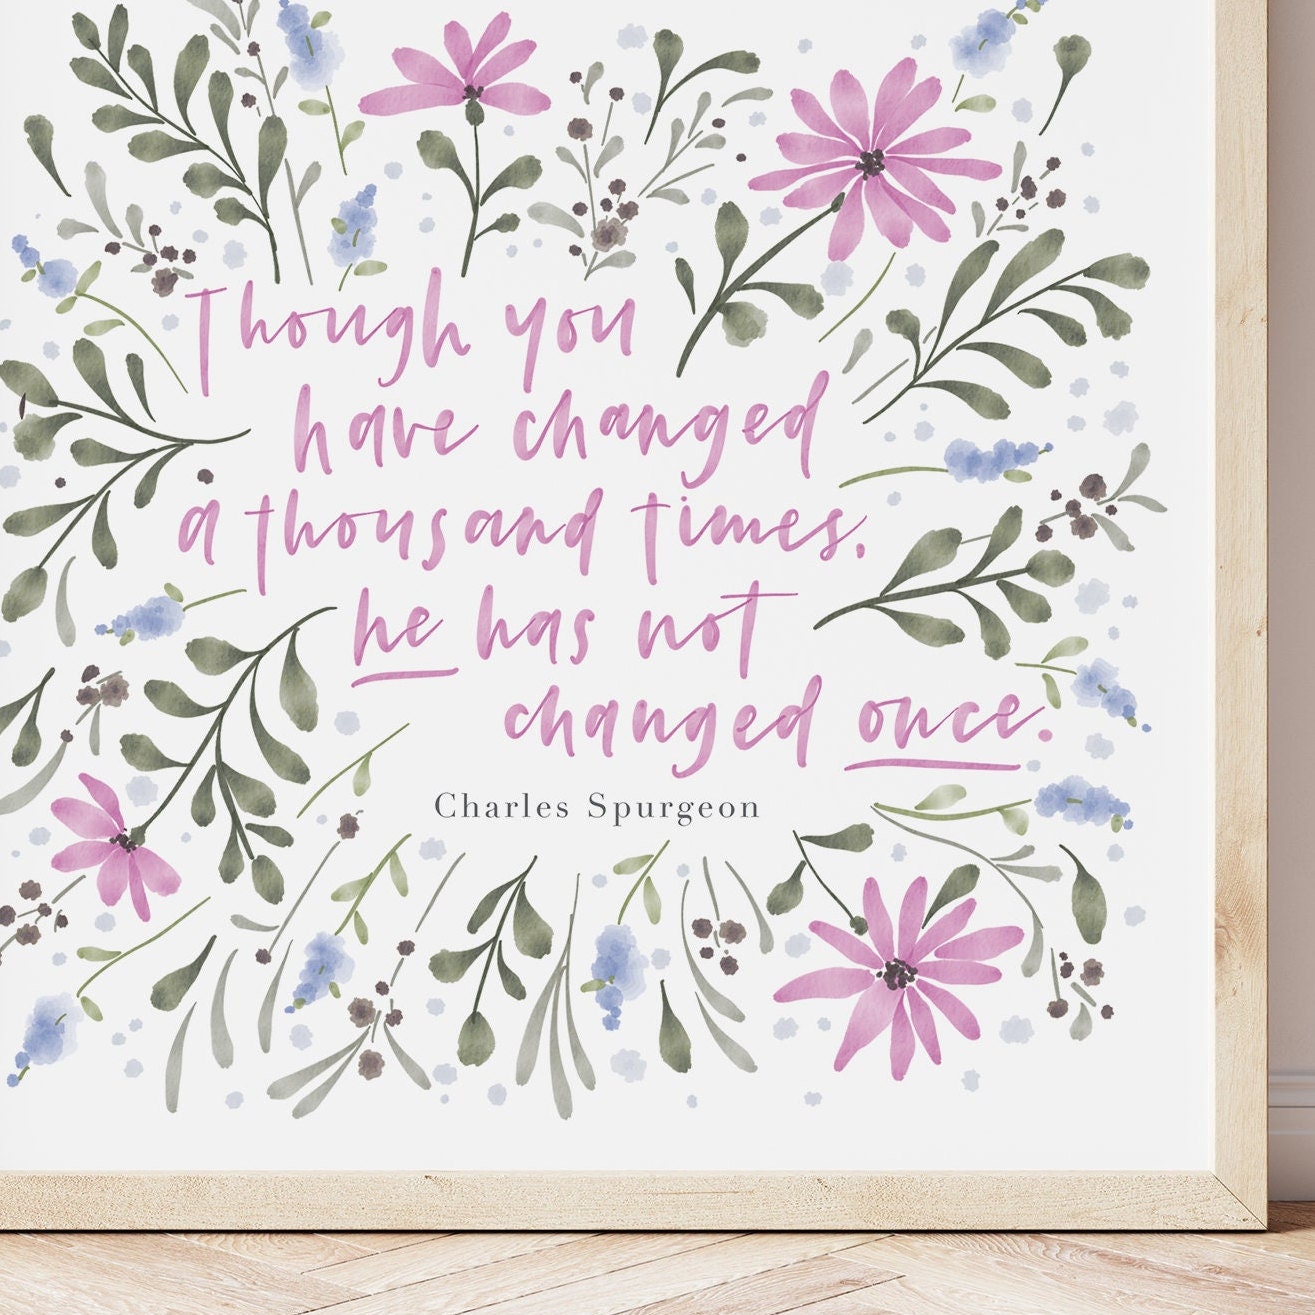 Though you
have changed
a thousand times,
he has not
changed once.
Charles Spurgeon